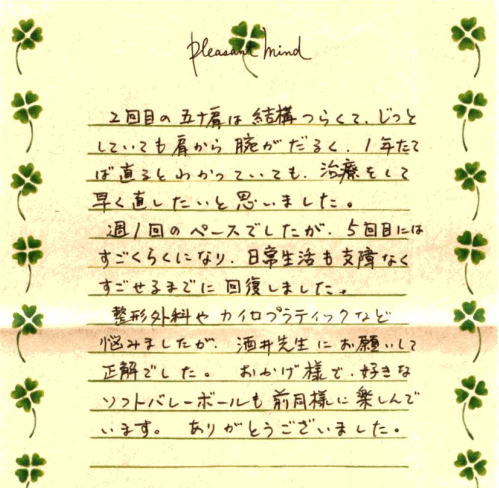 pleasant mind
2回目の五十肩は結構つらくて、じっと
していても肩から腕がだるく、1年たて
ば直るとわかっていても、治療をして
早く直したいと思いました。
週1回のペースでしたが、5回目には
すごくらくになり、日常生活も支障なく
すごせるまでに回復しました。
整形外科やカイロプラティックなど
悩みましたが、酒井先生にお願いして
正解でした。 おかげ様で、好きな
ソフトバレーボールも前同様に楽しんで
います。 ありがとうございました。